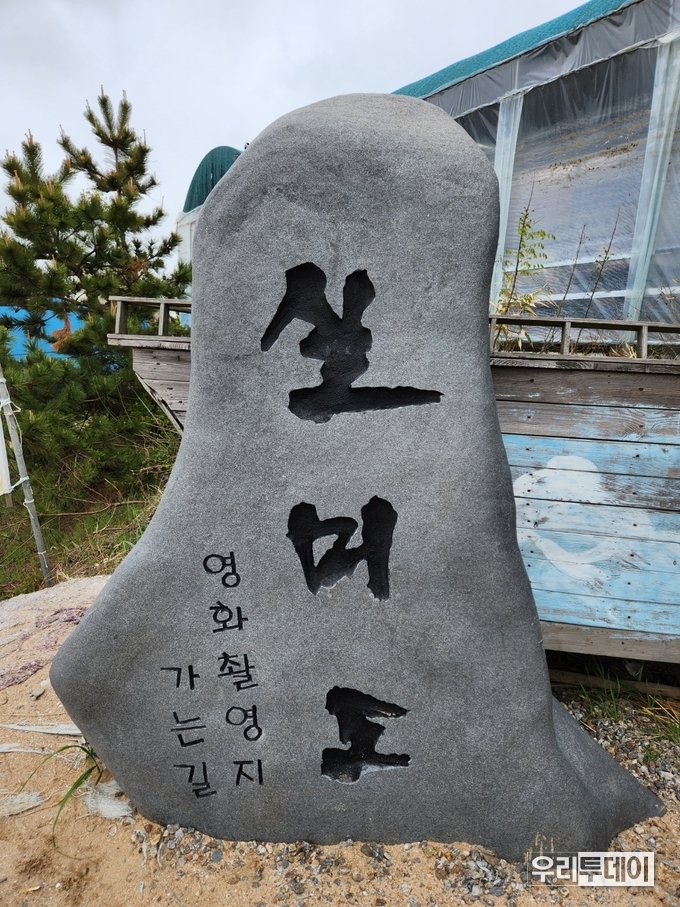 실미도
영화촬영지
가는길
우리투데이